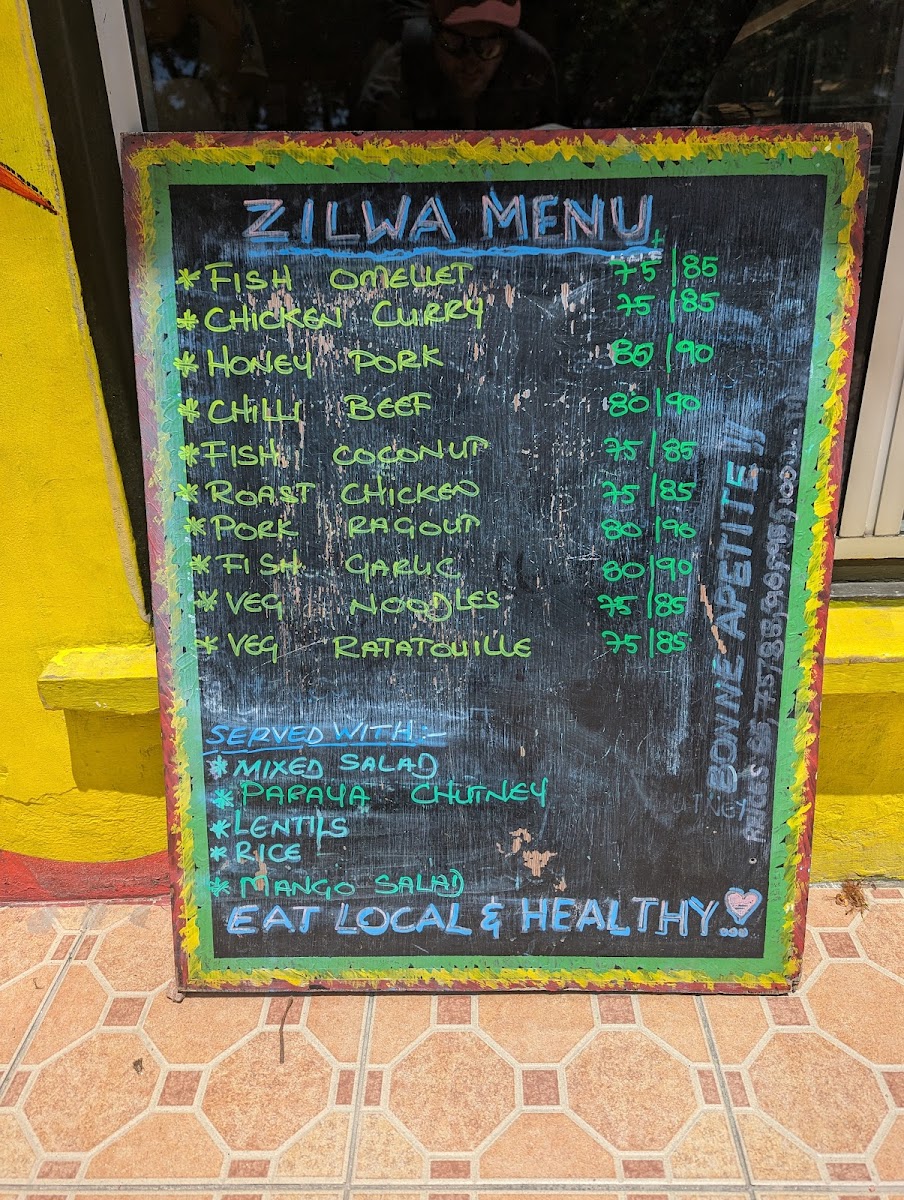 ZILWA MENU
*FISH OMELLET 75|85
*CHICKEN CURRY 75|85
*HONEY PORK 80|90
*CHILLI BEEF 80|90
*FISH COCONUT 75|85
*ROAST CHICKEN 75|85
*PORK RAGOUT 80|90
*FISH GARLIC 80|90
*VEG NOODLES 75|85
*VEG RATATOUILLE 75|85
SERVED WITH:-
*MIXED SALAD
*PAPAYA CHUTNEY
*LENTILS
*RICE
*MANGO SALAD
EAT LOCAL & HEALTHY...
BONNE APETITE !!